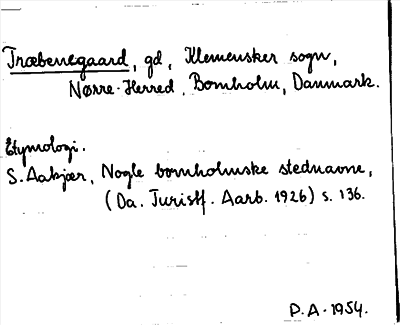 Træbenegaard, gd, Klemensker sogn,
Nørre-Herred, Bornholm, Danmark.
Etymologi.
S. Aakjær, Nogle bornholmske stednavne,
(Da. Turistf. Aarb. 1926) s. 136.
P.A. 1954.